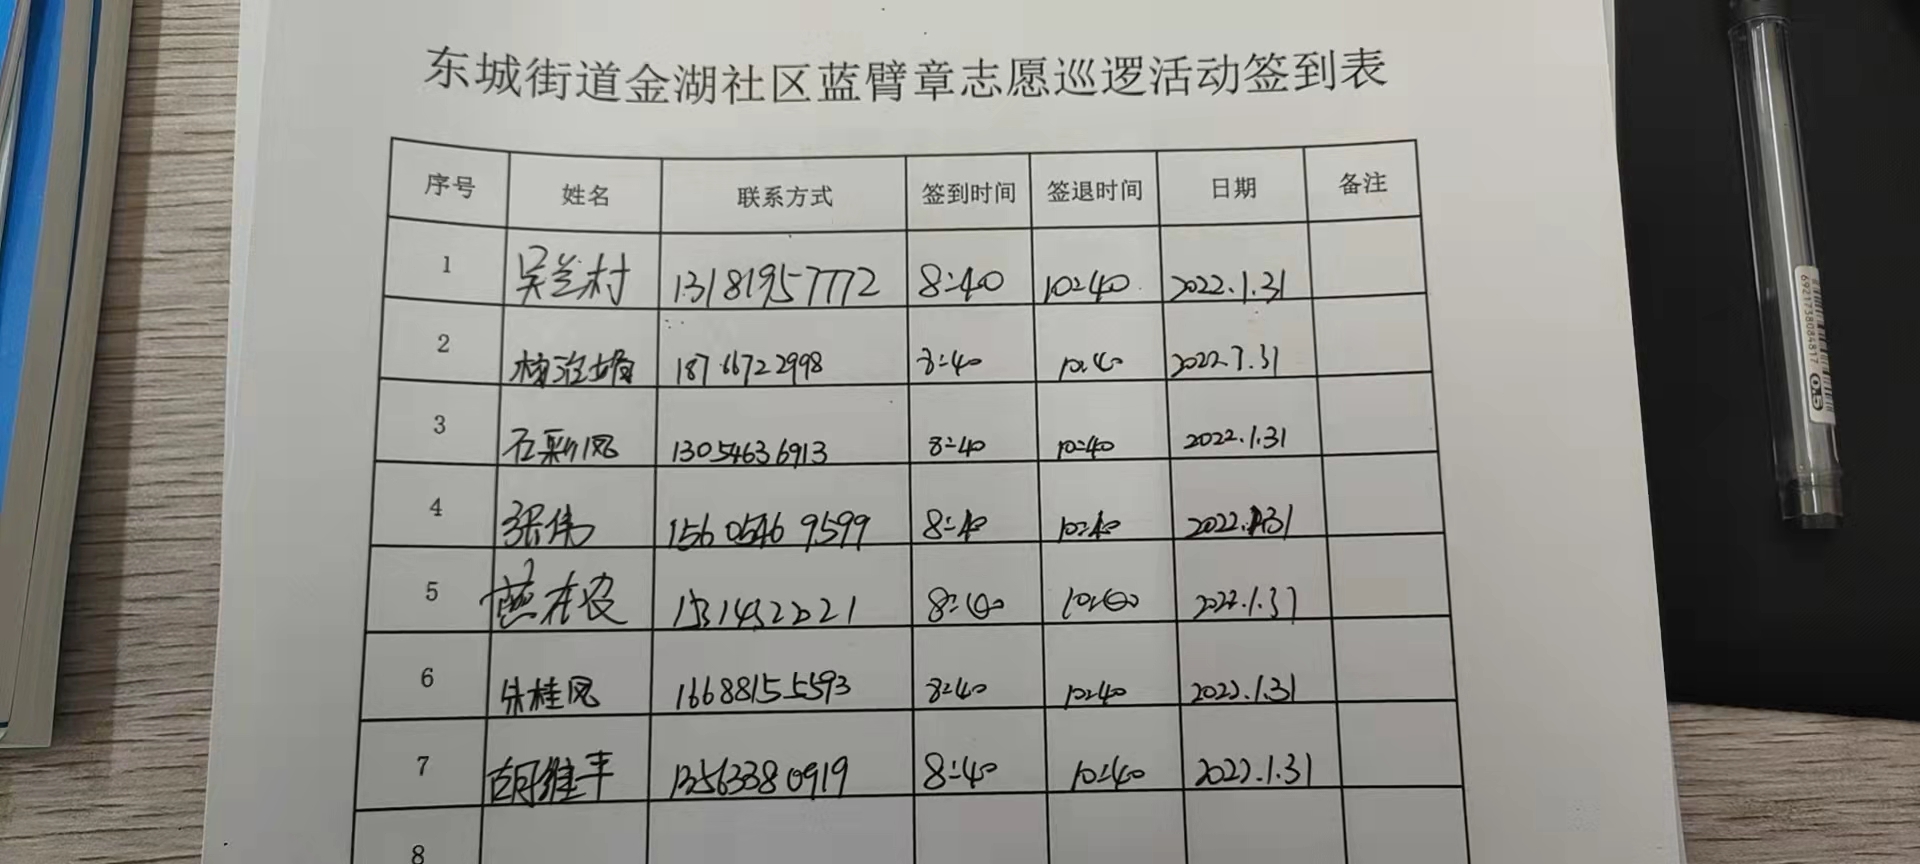 东城街道金湖社区蓝臂章志愿巡逻活动签到表
序号 姓名 联系方式 签到时间 签退时间 日期 备注
1 吴兰村 13181957772 8:40 10:40 2022.1.31
2 18766722998 8:40 10:40 2022.7.31
3 石彩凤 13054636913 8:40 10:40 2022.1.31
4 张伟 15605469599 8:40 10:40 2022.1.31
5 8:40 10:40 2022.1.31
6 朱桂凤 16688155593 8:40 10:40 2022.1.31
7 胡维丰 13563380919 8:40 10:40 2022.1.31
8
6921738084817 0.5